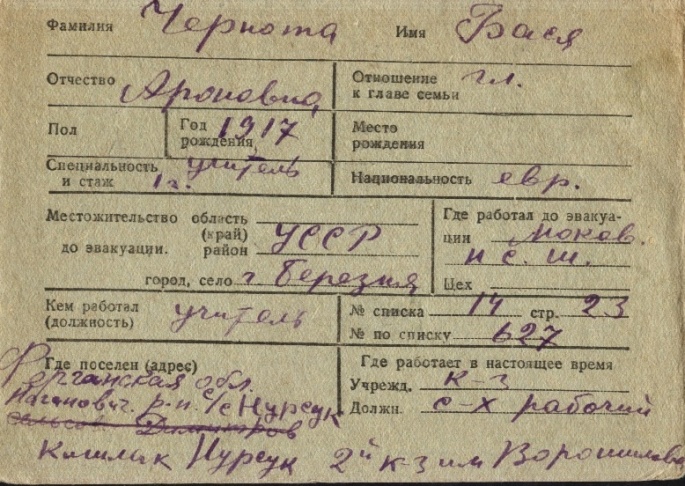 Фамилия Чернота Имя Бася
Отчество Ароновна Отношение к главе семьи гл.
Пол Год рождения 1917 Место рождения
Специальность и стаж учитель 1 г. Национальность евр.
Местожительство до эвакуации. область (край) район УССР
город, село г Березня
Где работал до эвакуации
н с. ш.
Цех
Кем работал (должность) учитель
№ списка 14 стр. 23
№ по списку 627
Где поселен (адрес)
Ферганская обл.
р-н с/с Нурсук
Кишлак Нурсук 2й к-з им Ворошилова
Где работает в настоящее время
Учрежд. к-з
Должн. с-х рабочий